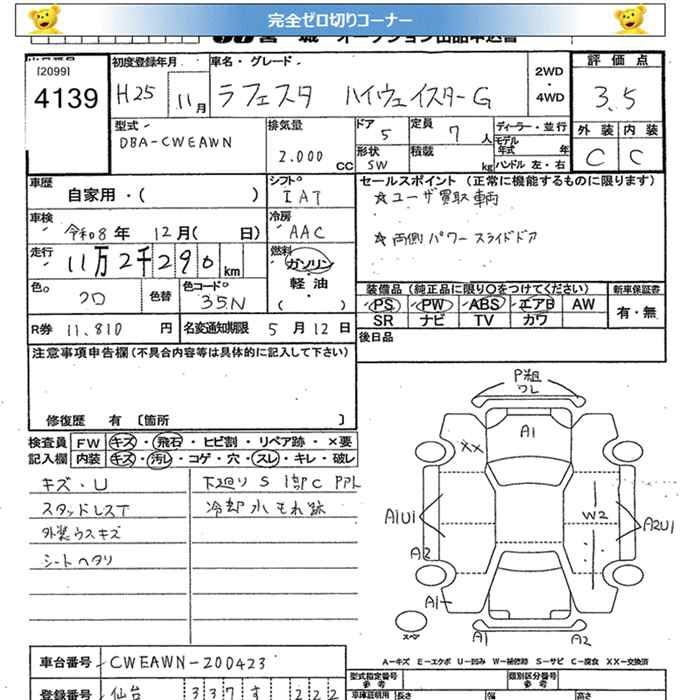 完全ゼロ切りコーナー
宮城 オークション出品申込書
[2099]
4139
初度登録年月
H25 11月
車名・グレード
ラフェスタ ハイウェイスターG
2WD・4WD
評価点
3.5
外装 内装
C C
型式
DBA-CWEAWN
排気量
2.000 CC
ドア 5
定員 7人
形状 SW
積載 kg
ディーラー・並行
モデル年式 年
ハンドル 左・右
車歴
自家用・( )
シフト
IAT
車検
令和8年 12月( 日)
冷房
AAC
走行
11万2千290km
燃料
ガソリン・軽油・( )
色
クロ
色替
色コード
35N
R券 11,810円
名変通知期限 5月12日
セールスポイント (正常に機能するものに限ります)
☆ユーザ買取車両
☆両側パワースライドドア
装備品 (純正品に限り○をつけてください)
新車保証書
PS PW ABS エアB AW
SR ナビ TV カワ
有・無
後日品
注意事項申告欄(不具合内容等は具体的に記入して下さい)
修復歴 有 〔箇所 〕
検査員記入欄
FW キズ・飛石・ヒビ割・リペア跡・×要
内装 キズ・汚レ・コゲ・穴・スレ・キレ・破レ
キズ・U
スタッドレスT
外装ウスキズ
シートヘタリ
下廻りS 1部C
冷却水もれ跡
P粗
ワレ
A1
XX
A1U1
W2
A2U1
A2
A1
スペア
A1 A2
A-キズ E-エクボ U-凹み W-補修跡 S-サビ C-腐食 XX-交換済
車台番号 CWEAWN-200423
登録番号 仙台 337 す 222
型式指定番号 参考
類別区分番号 参考
車庫証明用 長さ 幅 高さ